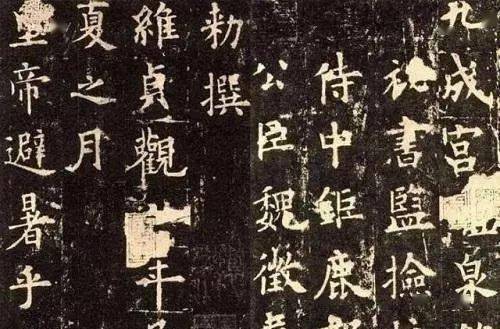 九成宮泉
祕書監撿
侍中鉅鹿
公臣魏徵
勅撰
維貞觀年
夏之月
皇帝避暑乎